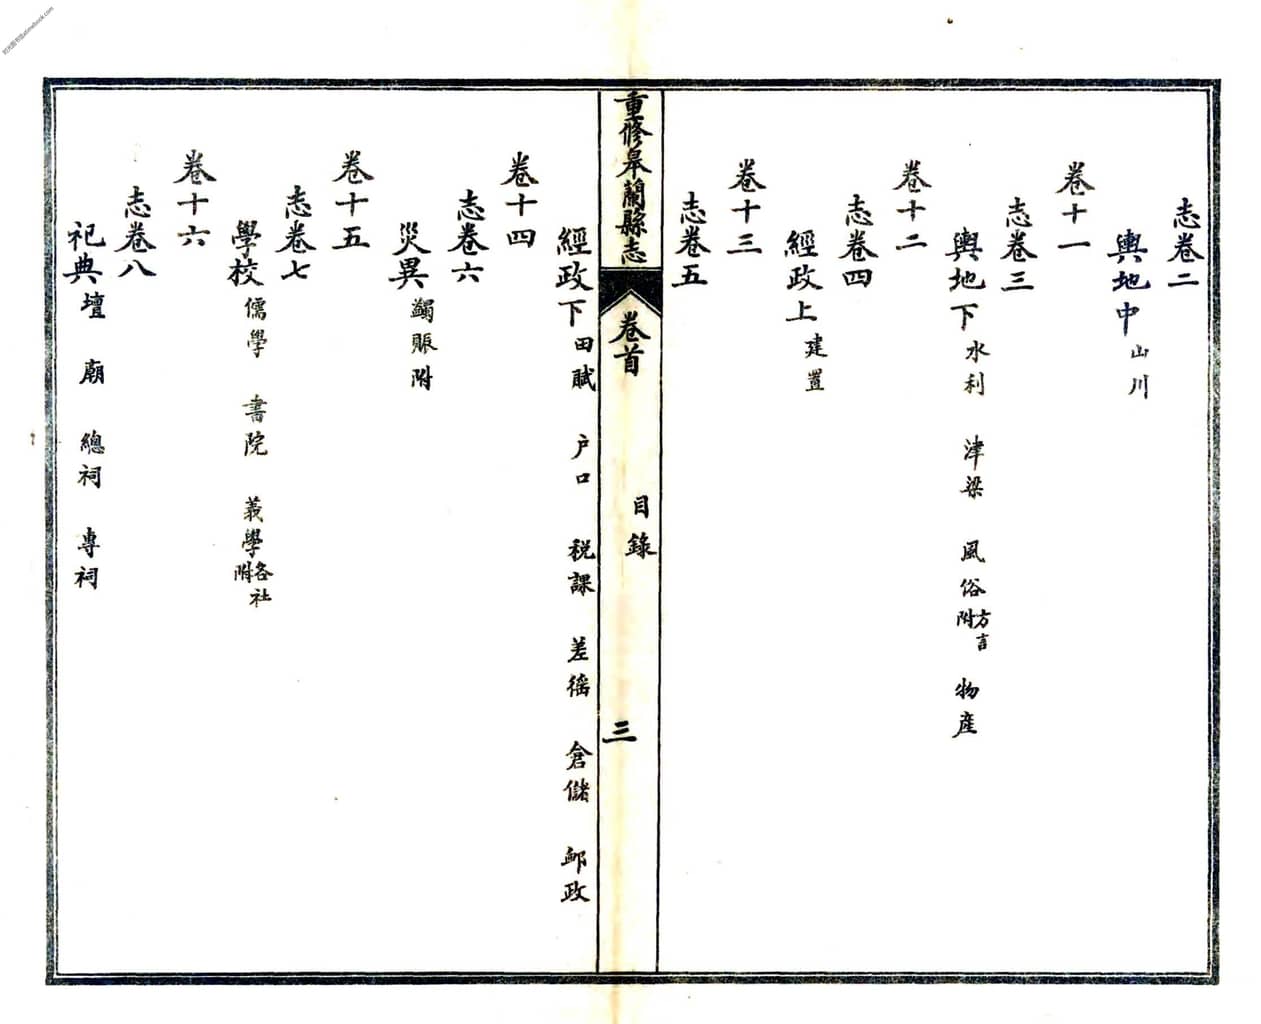 志卷二
輿地中 山川
卷十一
志卷三
輿地下 水利 津梁 風俗 方言附 物産
卷十二
志卷四
經政上 建置
卷十三
志卷五
重修皋蘭縣志 卷首 目錄 三
經政下 田賦 户口 税課 差徭 倉儲 郵政
卷十四
志卷六
災異 蠲賑附
卷十五
志卷七
學校 儒學 書院 義學 各社附
卷十六
志卷八
祀典 壇 廟 總祠 專祠